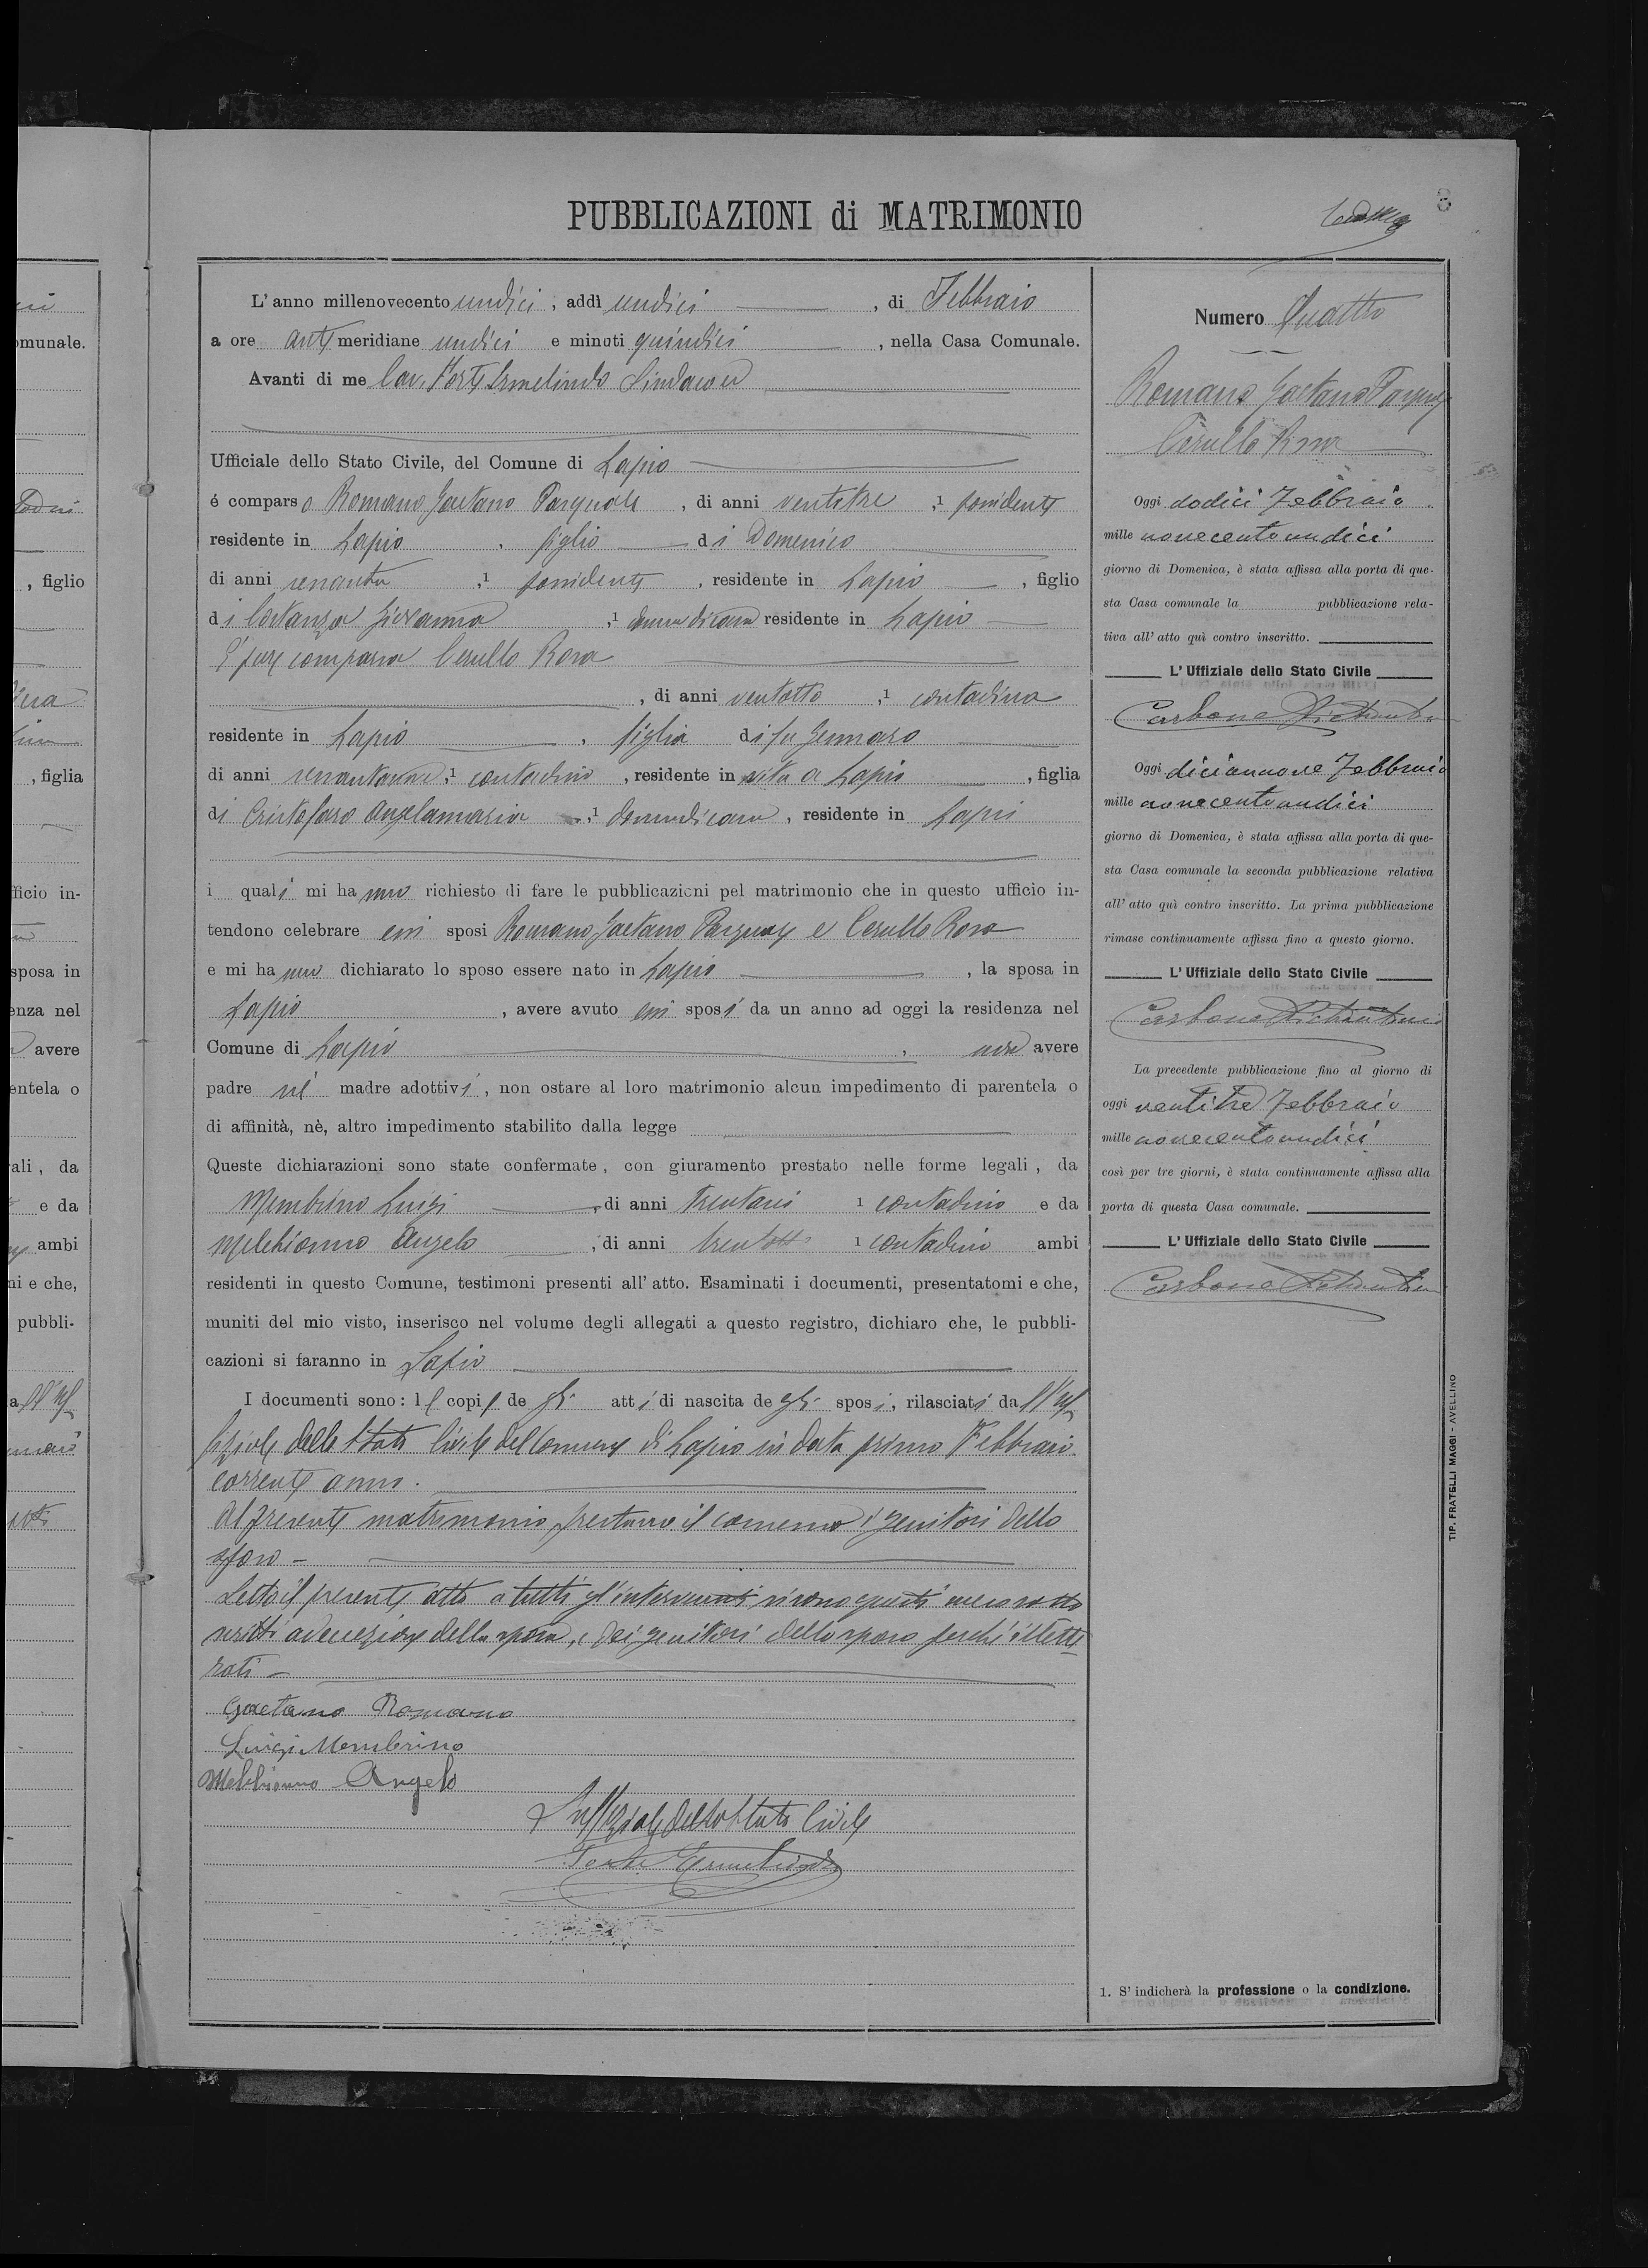 PUBBLICAZIONI di MATRIMONIO
8
L'anno millenovecento undici, addì undici, di Febbraio
a ore anti meridiane undici e minuti quindici, nella Casa Comunale.
Avanti di me Cav. Forte Ermelindo Sindaco ed
Ufficiale dello Stato Civile, del Comune di Lapio
é comparso Romano Gaetano Pasquale, di anni ventitre, 1 possidente
residente in Lapio, figlio di Domenico
di anni sessanta, 1 possidente, residente in Lapio, figlio
di Costanza Giovanna, 1 donna di casa residente in Lapio
È pure comparsa Cerullo Rosa
, di anni ventotto, 1 contadina
residente in Lapio, figlia di fu Gennaro
di anni 1 contadino, residente in vita a Lapio, figlia
di Cristofaro Angelamaria, 1 donna di casa, residente in Lapio
i quali mi hanno richiesto di fare le pubblicazioni pel matrimonio che in questo ufficio in-
tendono celebrare essi sposi Romano Gaetano Pasquale e Cerullo Rosa
e mi hanno dichiarato lo sposo essere nato in Lapio, la sposa in
Lapio, avere avuto essi sposi da un anno ad oggi la residenza nel
Comune di Lapio, non avere
padre nè madre adottivi, non ostare al loro matrimonio alcun impedimento di parentela o
di affinità, nè, altro impedimento stabilito dalla legge
Queste dichiarazioni sono state confermate, con giuramento prestato nelle forme legali, da
Membrino Luigi, di anni trentasei 1 contadino e da
Melchionno Angelo, di anni trentotto 1 contadino ambi
residenti in questo Comune, testimoni presenti all'atto. Esaminati i documenti, presentatomi e che,
muniti del mio visto, inserisco nel volume degli allegati a questo registro, dichiaro che, le pubbli-
cazioni si faranno in Lapio
I documenti sono: 1 le copie degli atti di nascita degli sposi, rilasciati dall'Uf
fiziale dello Stato Civile del Comune di Lapio in data primo Febbraio
corrente anno.
Al presente matrimonio prestano il consenso i genitori dello
sposo -
Letto il presente atto a tutti gl'intervenuti, si sono questi meco sotto
scritti ad eccezione della sposa, e dei genitori dello sposo perchè illette
rati -
Gaetano Romano
Luigi Membrino
Melchionno Angelo
L'uffiziale dello Stato Civile
Forte Ermelindo
Numero Quattro
Romano Gaetano Pasquale
Cerullo Rosa
Oggi dodici Febbraio
mille novecentoundici
giorno di Domenica, è stata affissa alla porta di que-
sta Casa comunale la pubblicazione rela-
tiva all'atto quì contro inscritto.
L'Uffiziale dello Stato Civile
Carbone
Oggi diciannove Febbraio
mille novecentoundici
giorno di Domenica, è stata affissa alla porta di que-
sta Casa comunale la seconda pubblicazione relativa
all'atto quì contro inscritto. La prima pubblicazione
rimase continuamente affissa fino a questo giorno.
L'Uffiziale dello Stato Civile
Carbone
La precedente pubblicazione fino al giorno di
oggi ventitre Febbraio
mille novecentoundici
così per tre giorni, è stata continuamente affissa alla
porta di questa Casa comunale.
L'Uffiziale dello Stato Civile
Carbone
1. S'indicherà la professione o la condizione.
TIP. FRATELLI MAGGI - AVELLINO
omunale.
, figlio
, figlia
fficio in-
sposa in
enza nel
avere
entela o
ali, da
e da
ambi
ni e che,
pubbli-